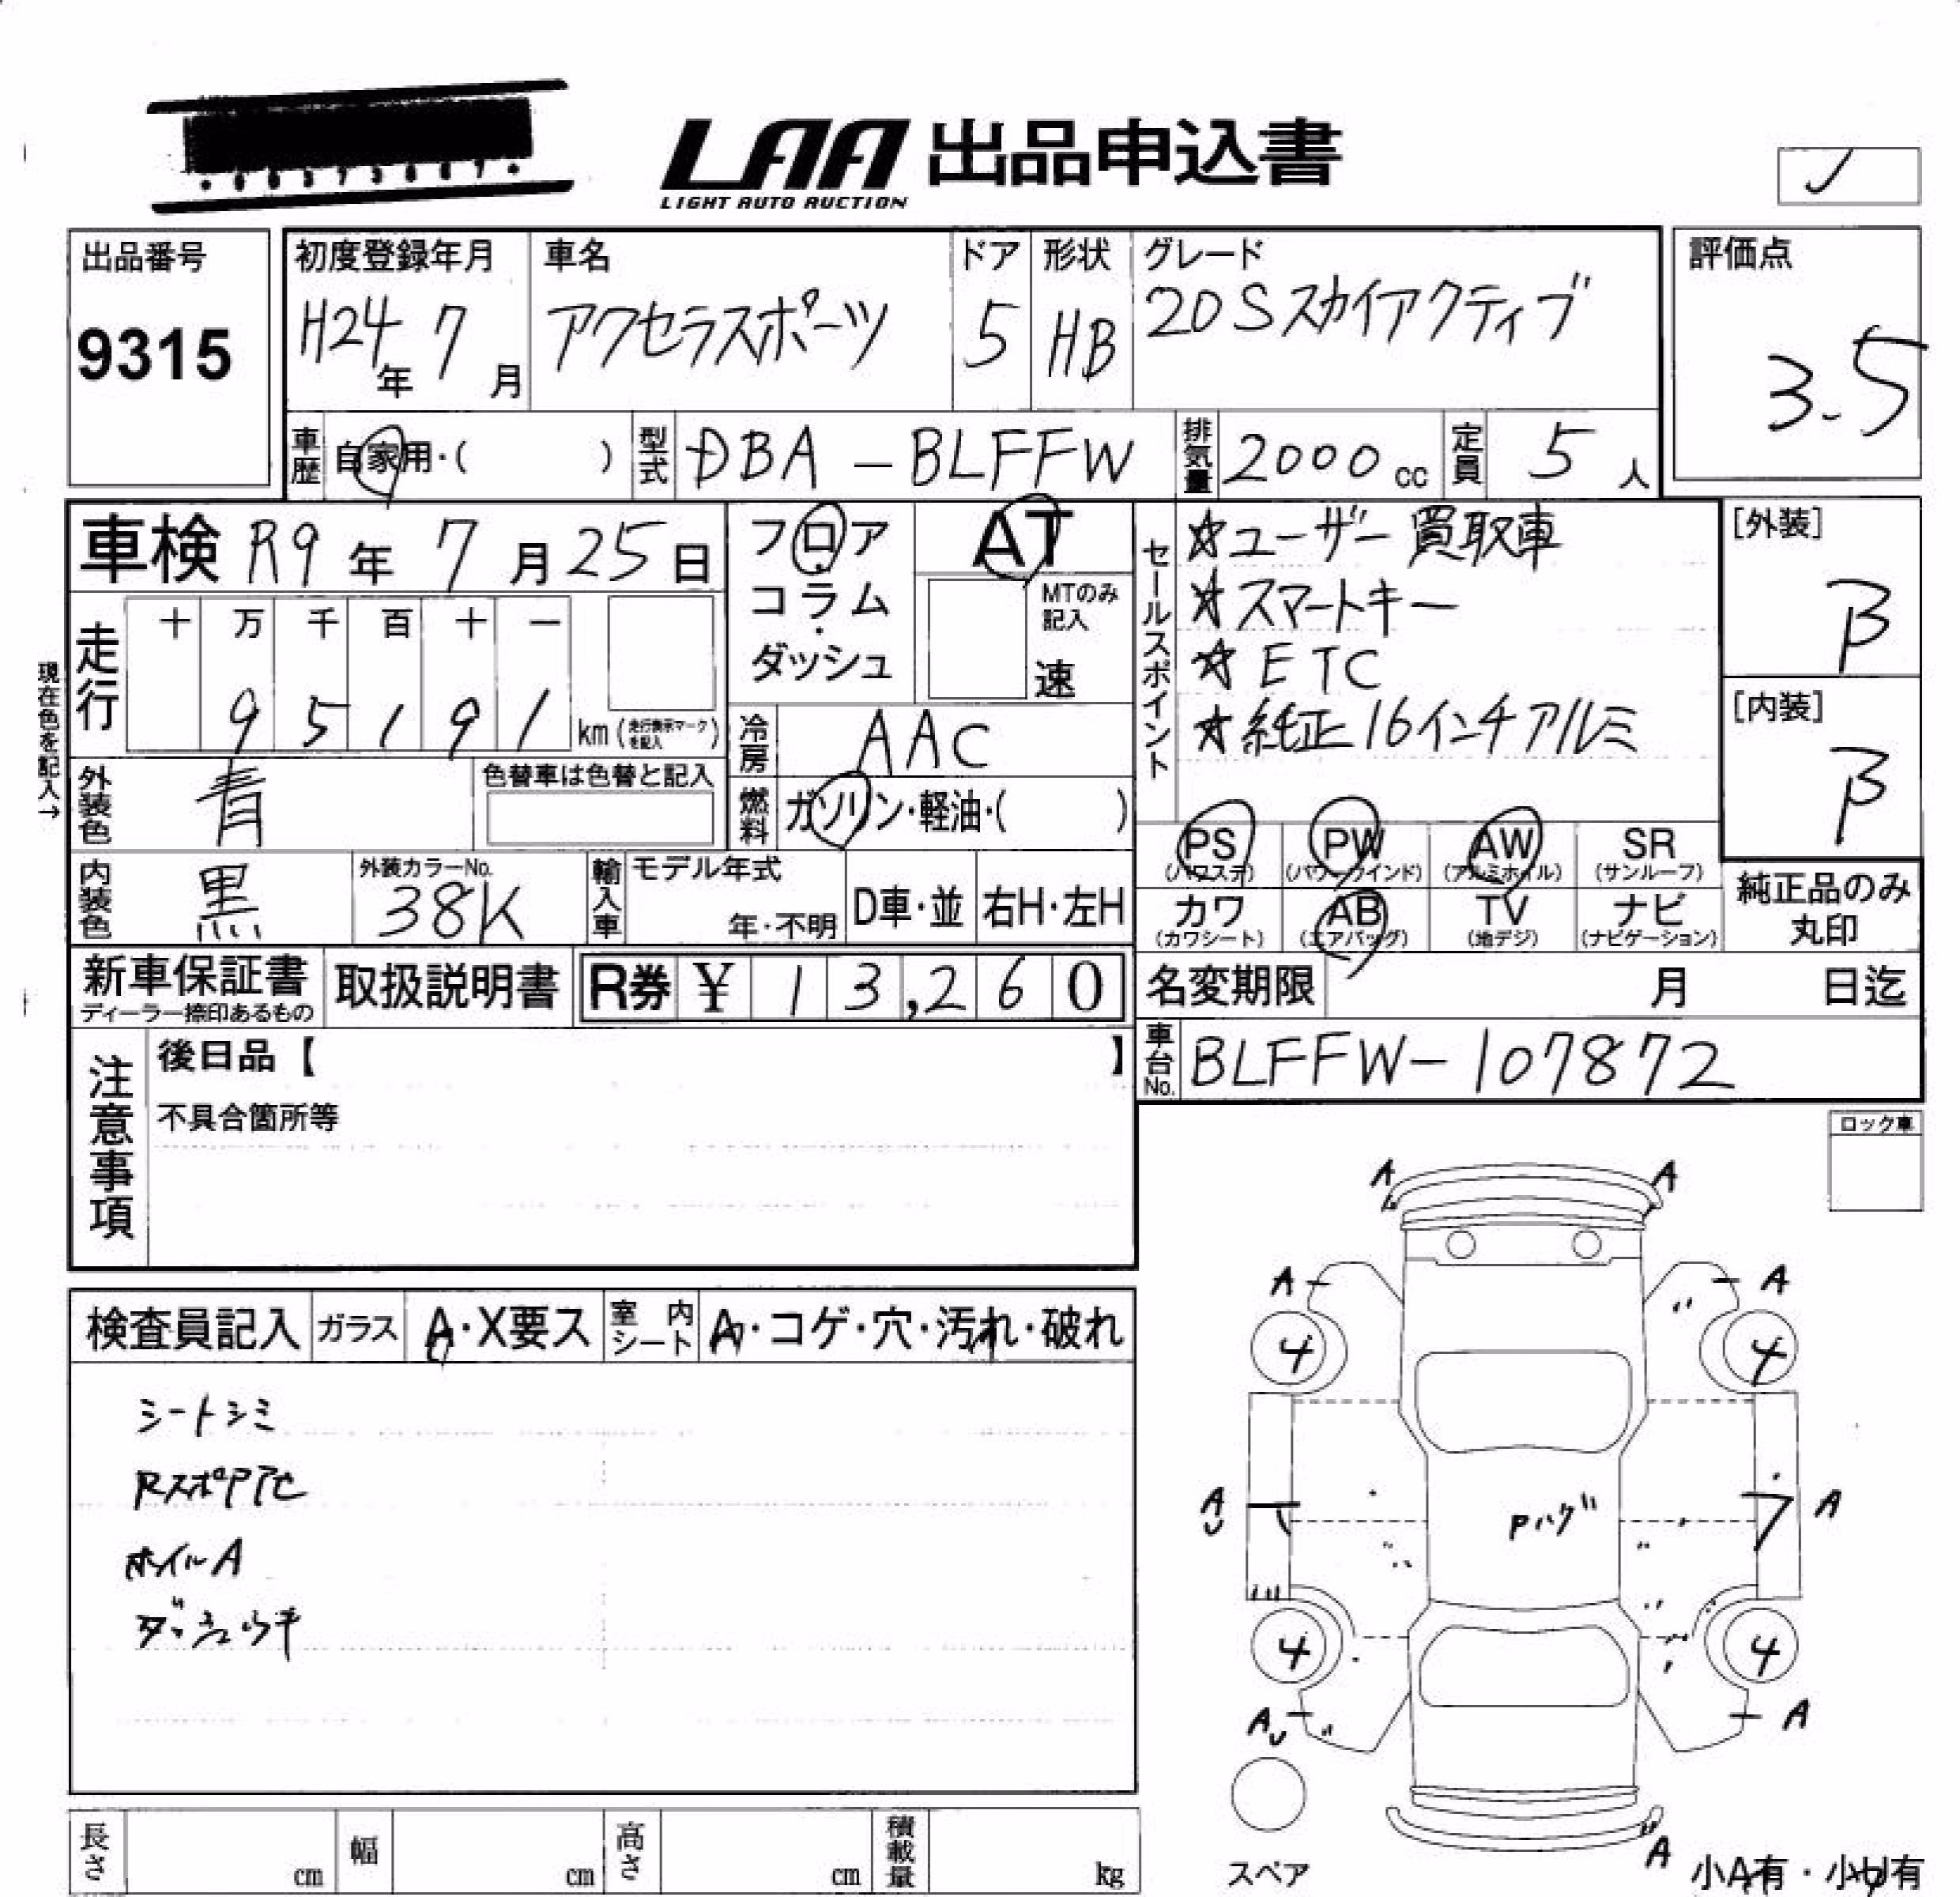 LAA 出品申込書
LIGHT AUTO AUCTION
出品番号
9315
初度登録年月
H24年 7月
車名
アクセラスポーツ
ドア
5
形状
HB
グレード
20Sスカイアクティブ
評価点
3.5
車歴 自家用・( )
型式 DBA-BLFFW
排気量 2000cc
定員 5人
車検 R9年 7月25日
フロア
コラム
・
ダッシュ
AT
MTのみ記入
速
セールスポイント
☆ユーザー買取車
☆スマートキー
☆ETC
☆純正16インチアルミ
[外装]
B
[内装]
B
現在色を記入→
走行
十 万 千 百 十 一
9 5 1 9 1 km (走行表示マークを記入)
冷房 AAC
外装色 青
色替車は色替と記入
燃料 ガソリン・軽油・( )
内装色 黒
外装カラーNo.
38K
輸入車 モデル年式
年・不明
D車・並
右H・左H
PS (パワステ)
PW (パワーウインド)
AW (アルミホイル)
SR (サンルーフ)
カワ (カワシート)
AB (エアバッグ)
TV (地デジ)
ナビ (ナビゲーション)
純正品のみ
丸印
新車保証書
ディーラー捺印あるもの
取扱説明書
R券 ¥ 13,260
名変期限 月 日迄
車台No. BLFFW-107872
注意事項
後日品【 】
不具合箇所等
ロック車
検査員記入
ガラス A・X要ス
室内シート A・コゲ・穴・汚れ・破れ
シートシミ
ホイルA
A A
A A
4 4
A
A
Pハゲ
4 4
A
A
スペア
A
小A有・小U有
長さ cm
幅 cm
高さ cm
積載量 kg